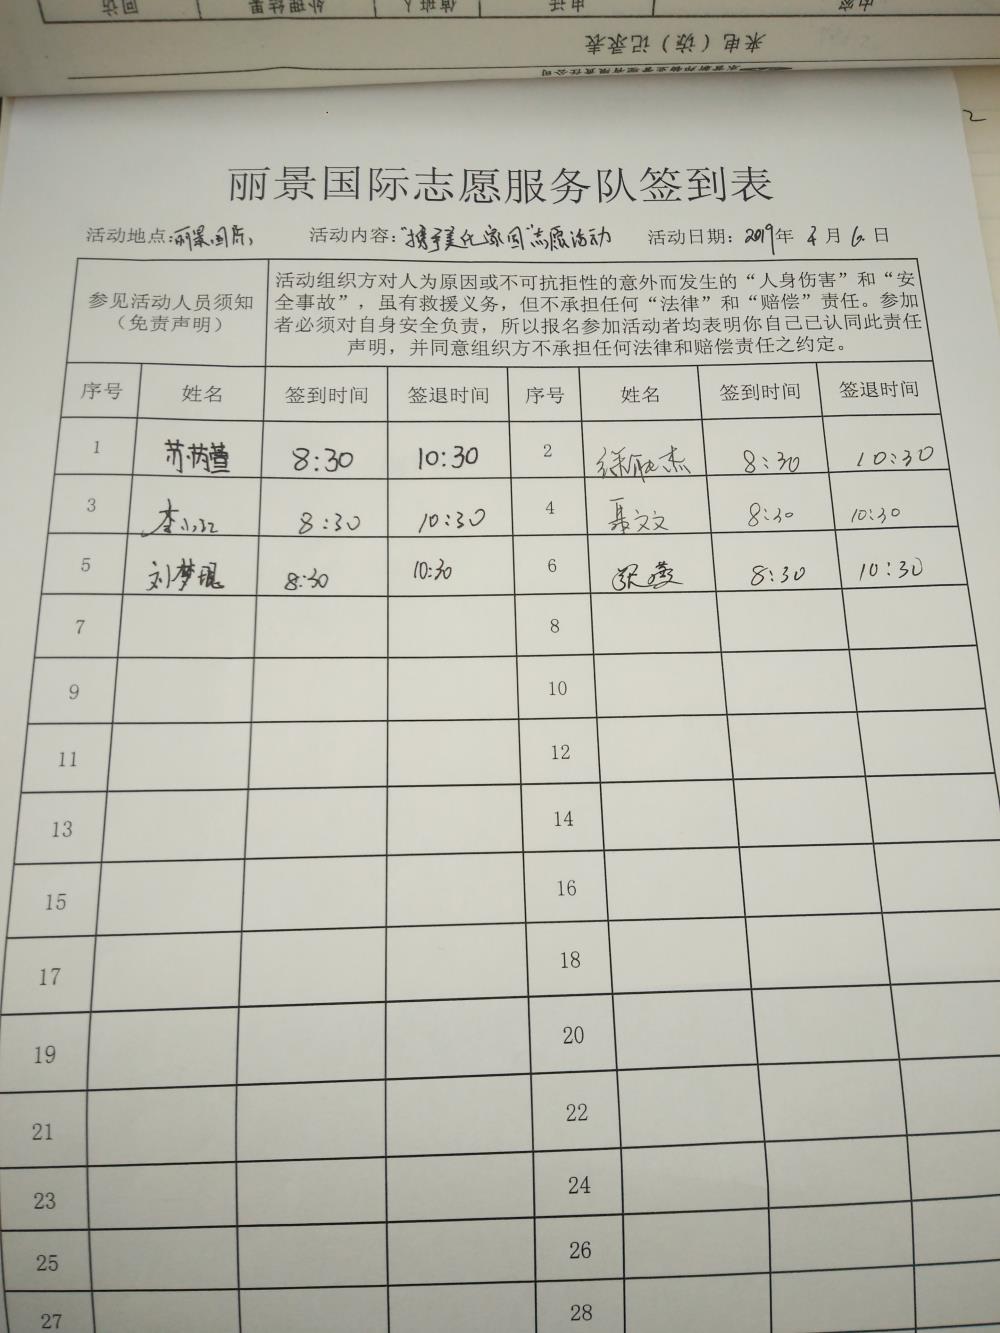 回访 处理结果 值班人 电话 内容
来电（访）记录表
丽景国际志愿服务队签到表
活动地点：丽景国际 活动内容：“携手美化家园”志愿活动 活动日期：2019年 4月 6日
参见活动人员须知
（免责声明）
活动组织方对人为原因或不可抗拒性的意外而发生的“人身伤害”和“安
全事故”，虽有救援义务，但不承担任何“法律”和“赔偿”责任。参加
者必须对自身安全负责，所以报名参加活动者均表明你自己已认同此责任
声明，并同意组织方不承担任何法律和赔偿责任之约定。
序号 姓名 签到时间 签退时间 序号 姓名 签到时间 签退时间
1 8:30 10:30 2 8:30 10:30
3 8:30 10:30 4 聂文文 8:30 10:30
5 刘梦琨 8:30 10:30 6 8:30 10:30
7 8
9 10
11 12
13 14
15 16
17 18
19 20
21 22
23 24
25 26
27 28